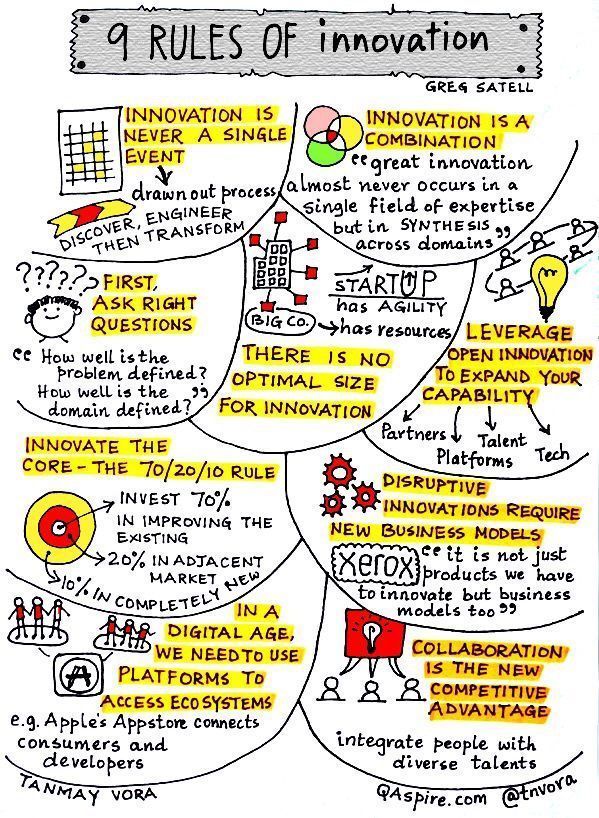 9 RULES OF innovation
GREG SATELL
INNOVATION IS
NEVER A SINGLE
EVENT
drawn out process
DISCOVER, ENGINEER
THEN TRANSFORM
INNOVATION IS A
COMBINATION
"great innovation
almost never occurs in a
single field of expertise
but in SYNTHESIS
across domains"
??????
FIRST,
ASK RIGHT
QUESTIONS
"How well is the
problem defined?
How well is the
domain defined?"
STARTUP
has AGILITY
BIG CO.
has resources
THERE IS NO
OPTIMAL SIZE
FOR INNOVATION
LEVERAGE
OPEN INNOVATION
TO EXPAND YOUR
CAPABILITY
Partners
Platforms
Talent
Tech
INNOVATE THE
CORE - THE 70/20/10 RULE
INVEST 70%
IN IMPROVING THE
EXISTING
20% IN ADJACENT
MARKET
10% IN COMPLETELY NEW
DISRUPTIVE
INNOVATIONS REQUIRE
NEW BUSINESS MODELS
xerox
"it is not just
products we have
to innovate but business
models too"
IN A
DIGITAL AGE,
WE NEED TO USE
PLATFORMS TO
ACCESS ECOSYSTEMS
A
e.g. Apple's Appstore connects
consumers and
developers
COLLABORATION
IS THE NEW
COMPETITIVE
ADVANTAGE
integrate people with
diverse talents
TANMAY VORA
QAspire.com @tnvora